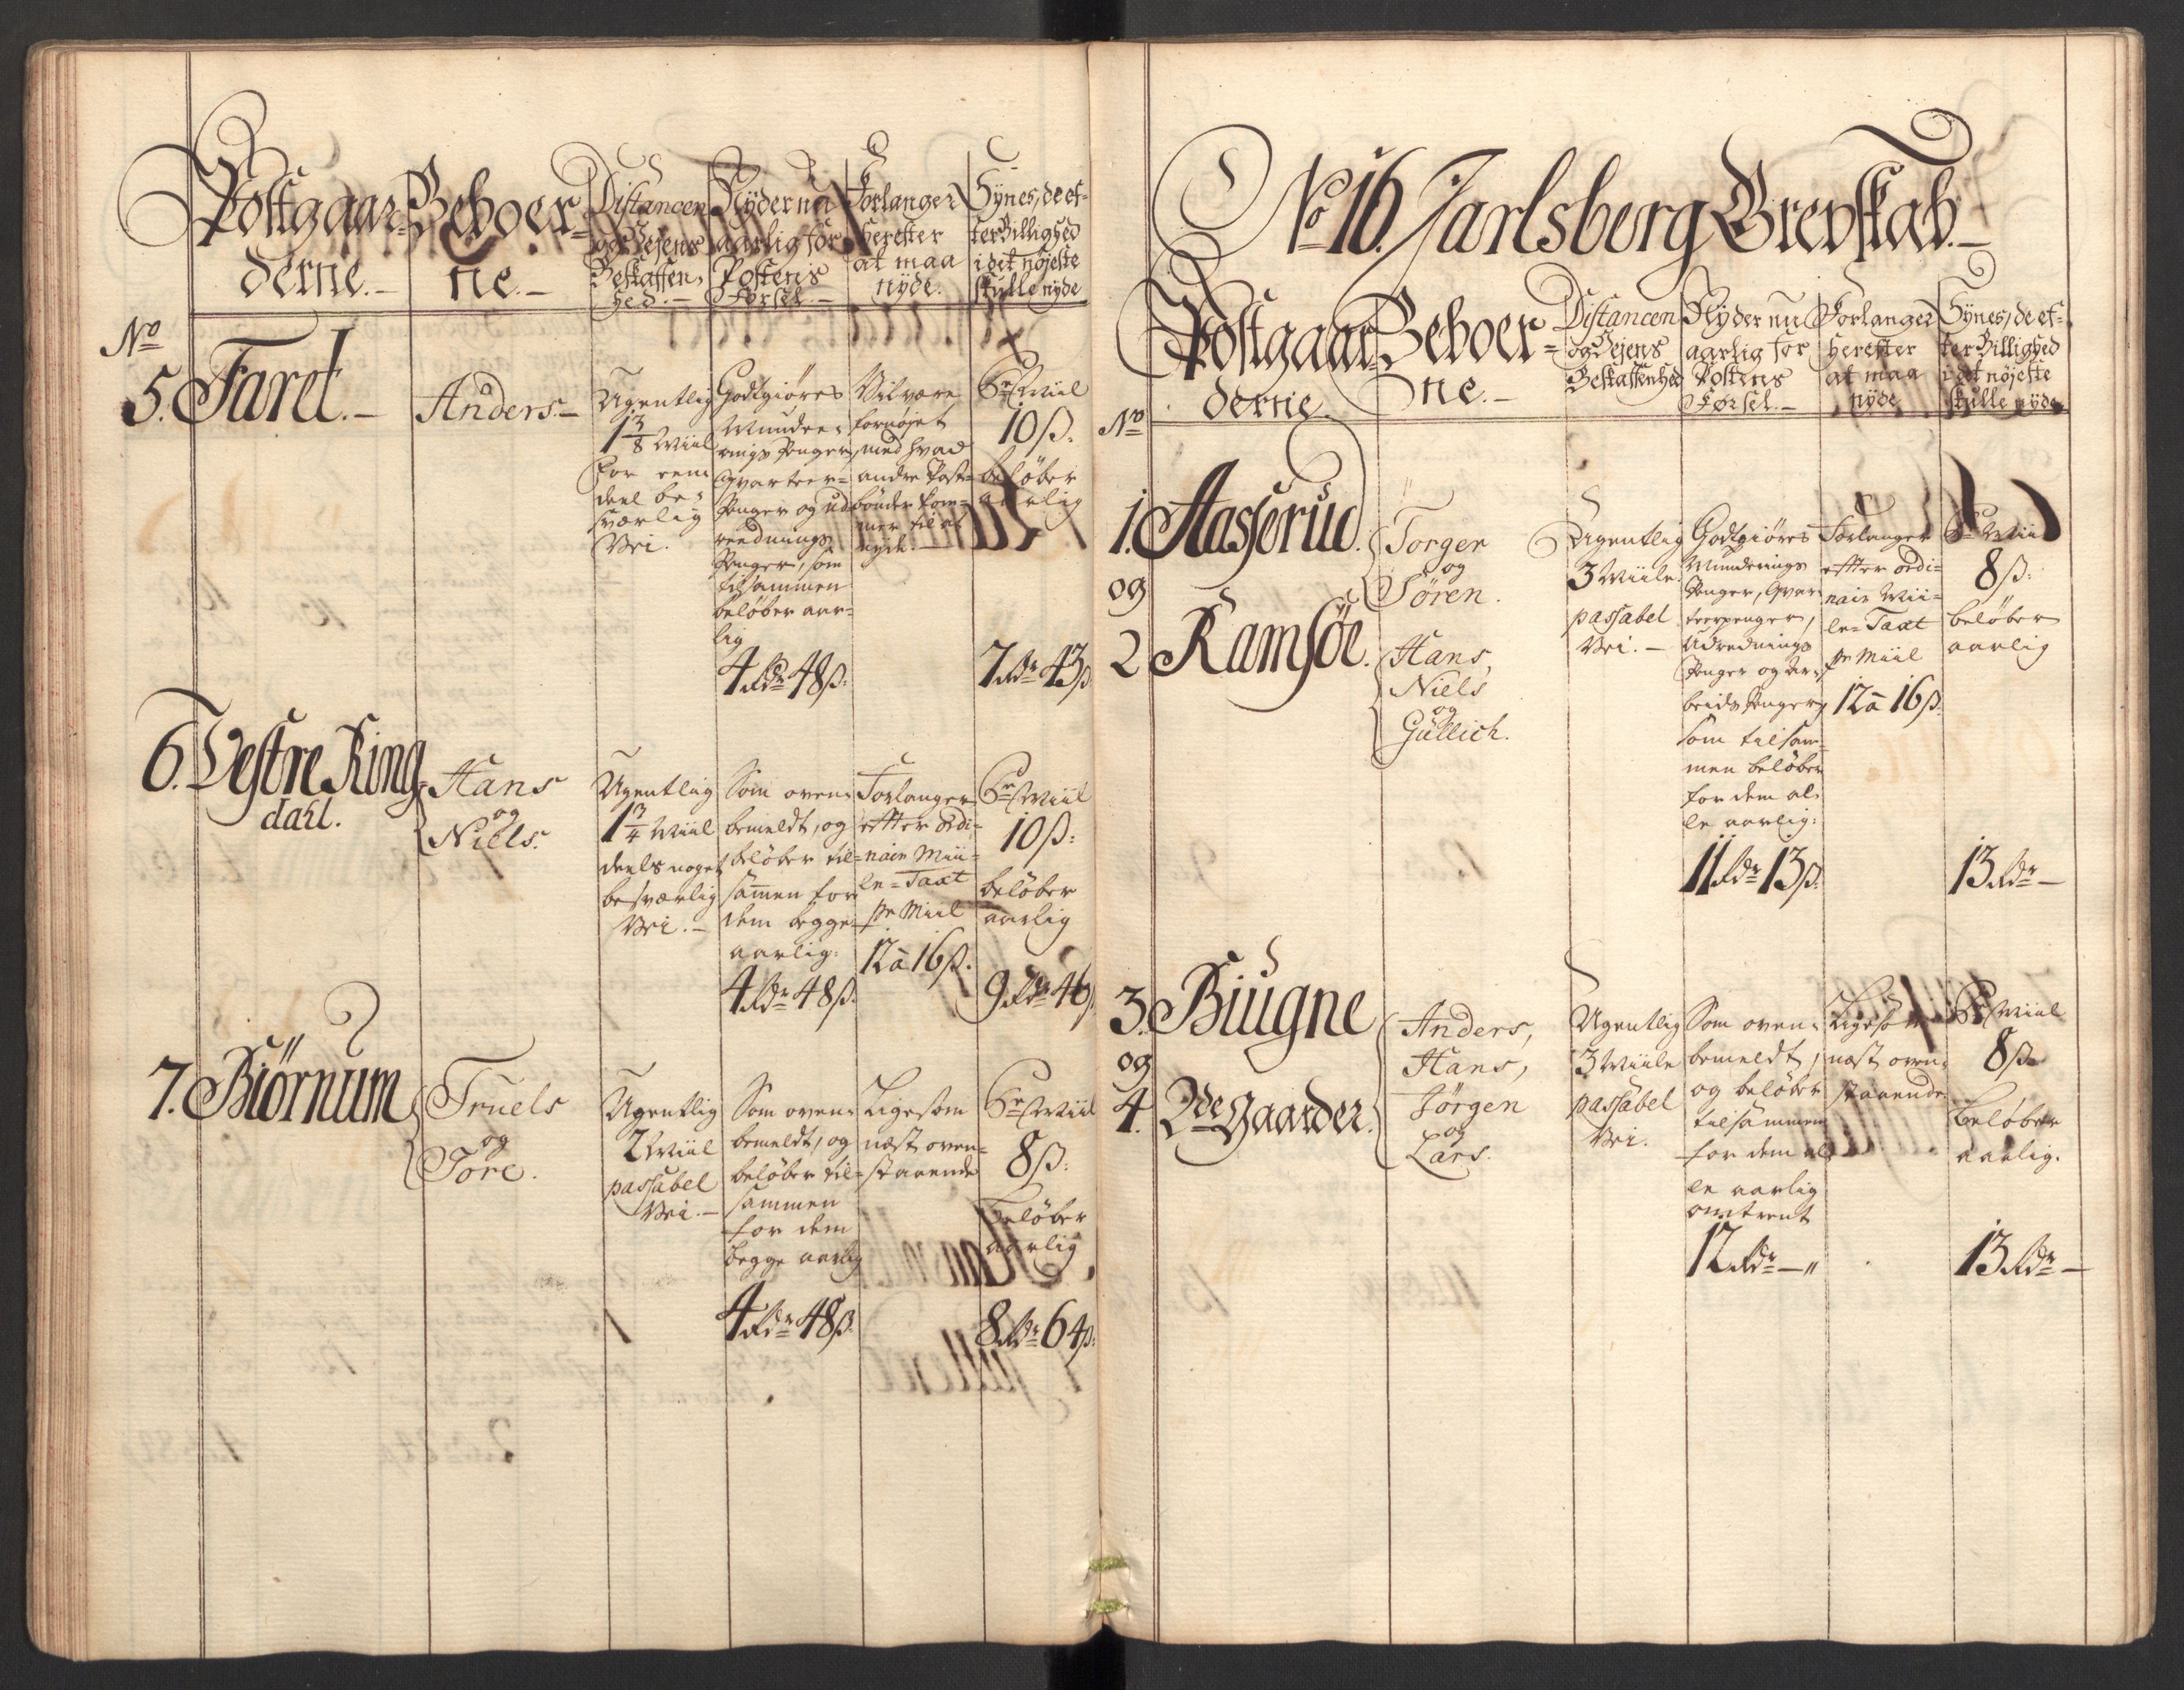 Postgaar=
derne.-
Beboer=
ne.-
Distancen
og Vejens
Beskaffen,
hed.-
Nyder nu
aarlig for
Postens
Førsel.-
Forlanger
herefter
at maa
nyde.
Synes, de ef-
ter Billighed
i det nøjeste
skulle nyde
No
5. Faret.-
Anders.-
Ugentlig
1 3/8 Miil
for een
deel be-
sværlig
Vei.
Godtgiøres
Munde-
rings Penger,
Qvarteer=
Penger og ud
reednings
Penger, som
tilsammen
beløber aar-
lig
4 Rdr 48 ß.
Vil være
fornøjet
med hvad
andre Post-
bønder kom-
mer til at
nyde.
Pr Miil
10 ß.
beløber
aarlig
7 Rdr 43 ß
6. Vestre Ring
dahl.
Hans
og
Niels.
Ugentlig
1 3/4 Miil
deels noget
besværlig
Vei.-
Som oven-
bemeldt, og
beløber til-
sammen for
dem begge
aarlig:
4 Rdr 48 ß.
Forlanger
efter ordi-
nair Mii-
le=Taxt
pr Miil
12 à 16 ß.
Pr Miil
10 ß:
beløber
aarlig
9 Rdr 46 ß.
7. Biørnum
Truels
og
Tore.
Ugentlig
2 Miil
passabel
Vei.-
Som oven-
bemeldt, og
beløber til-
sammen
for dem
begge aarlig
4 Rdr 48 ß.
Ligesom
næst oven-
staaende
Pr Miil
8 ß:
beløber
aarlig
8 Rdr 64 ß.
No 16. Jarlsberg Grevskab.-
Postgaar
derne.
Beboer=
ne.-
Distancen
og Vejens
Beskaffenhed
Nyder nu
aarlig for
Postens
Førsel.-
Forlanger
herefter
at maa
nyde
Synes, de ef-
ter Billighed
i det nøjeste
skulle nyde
No
1. Aasserud.
og
2 Ramsöe.
Torger
og
Sören.
Hans,
Niels
og
Gullich.
Ugentlig
3 Miile
passabel
Vei.-
Godtgiøres
Munderings
Penger, Qvar
teerpenger,
Udrednings
Penger og Ar-
beids Penger,
som tilsam-
men beløber
for dem al-
le aarlig:
11 Rdr 13 ß.
Forlanger
efter ordi-
nair Mii-
le=Taxt
pr Miil
12 à 16 ß.
Pr Miil
8 ß:
beløber
aarlig
13 Rdr -
3. Biugne
og
4. 2de Gaarder.
Anders,
Hans,
Jörgen
og
Lars.
Ugentlig
3 Miile
passabel
Vei.
Som oven-
bemeldt,
og beløber
tilsammen
for dem al
le aarlig
omtrent
12 Rdr - "
Ligesom
næst oven-
staaende
Pr Miil
8 ß
beløber
aarlig.
13 Rdr -